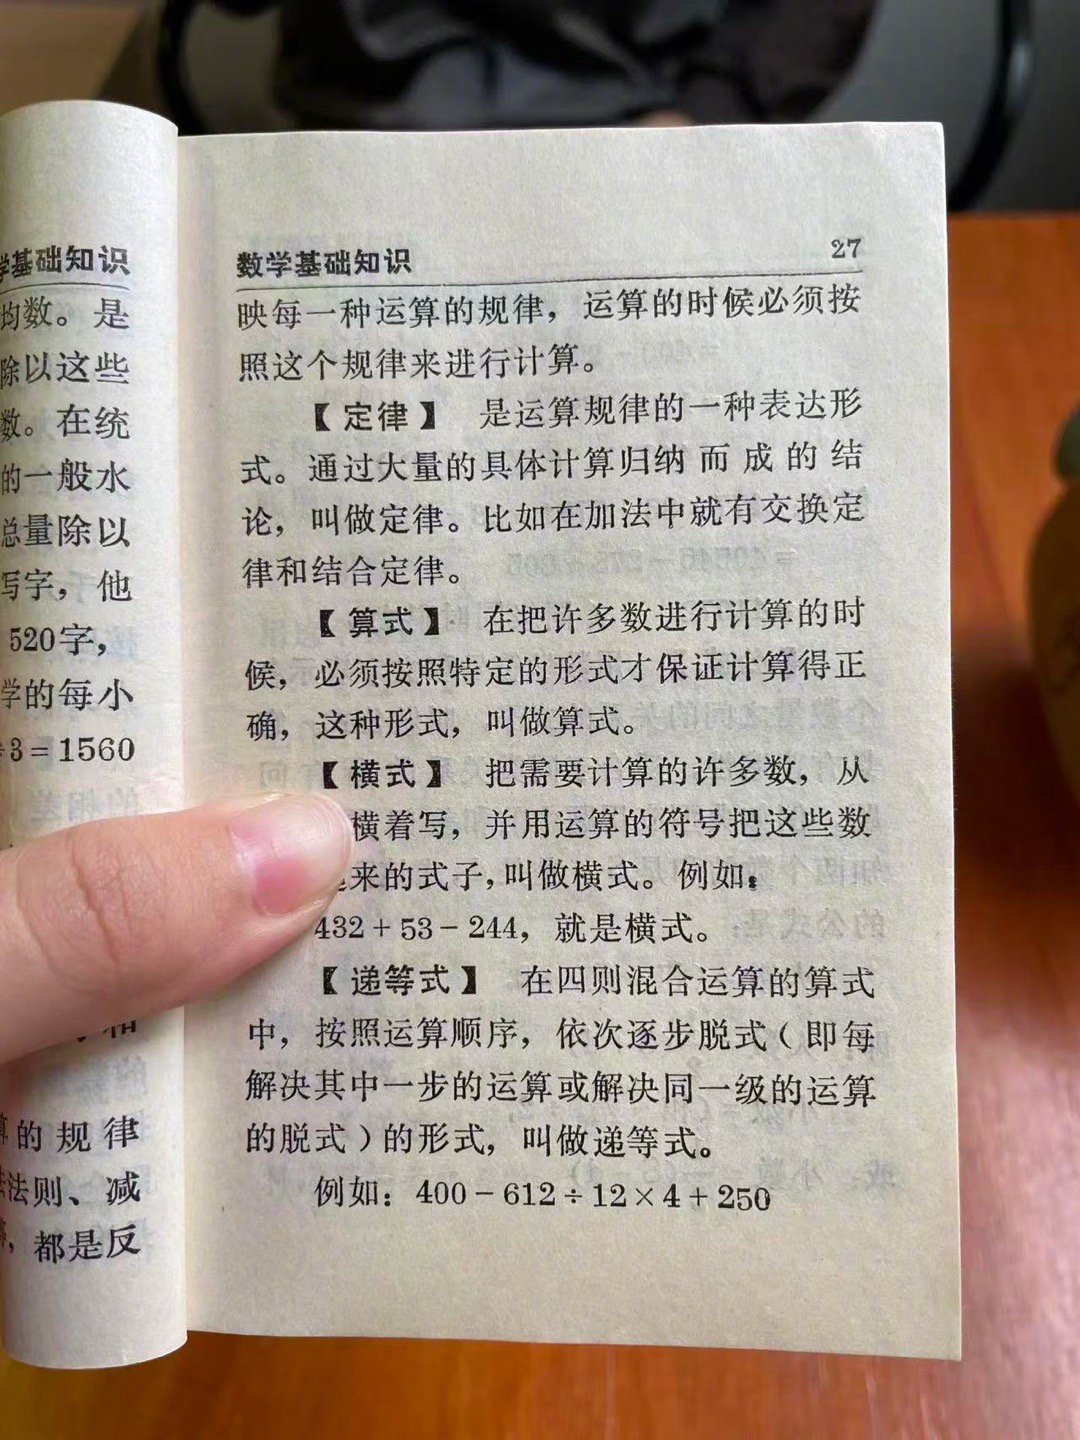 学基础知识
均数。是
除以这些
数。在统
的一般水
总量除以
写字，他
520字，
学的每小
÷3=1560
算的规律
法法则、减
都是反
数学基础知识 27
映每一种运算的规律，运算的时候必须按
照这个规律来进行计算。
【定律】 是运算规律的一种表达形
式。通过大量的具体计算归纳而成的结
论，叫做定律。比如在加法中就有交换定
律和结合定律。
【算式】 在把许多数进行计算的时
候，必须按照特定的形式才保证计算得正
确，这种形式，叫做算式。
【横式】 把需要计算的许多数，从
横着写，并用运算的符号把这些数
来的式子，叫做横式。例如：
432+53-244，就是横式。
【递等式】 在四则混合运算的算式
中，按照运算顺序，依次逐步脱式（即每
解决其中一步的运算或解决同一级的运算
的脱式）的形式，叫做递等式。
例如：400-612÷12×4+250